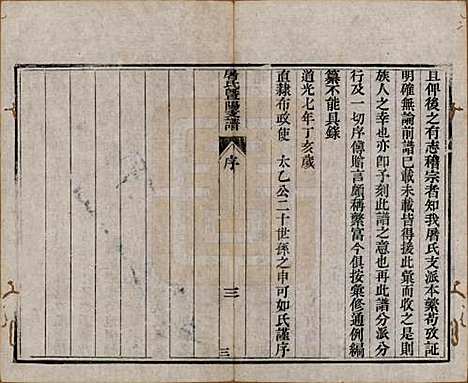 且俾後之有志稽宗者知我屠氏支派本蘩苟攷証
明確無論前譜已載未載皆得援此彙而收之是則
族人之幸也亦卽予刻此譜之意也再此譜分派分
行及一切序傳贈言頗稱蘩富今俱按彙修通例編
纂不能具錄
道光七年丁亥歲
直隸布政使 太乙公二十世孫之申可如氏謹序
屠氏暨陽支譜
序
三
三